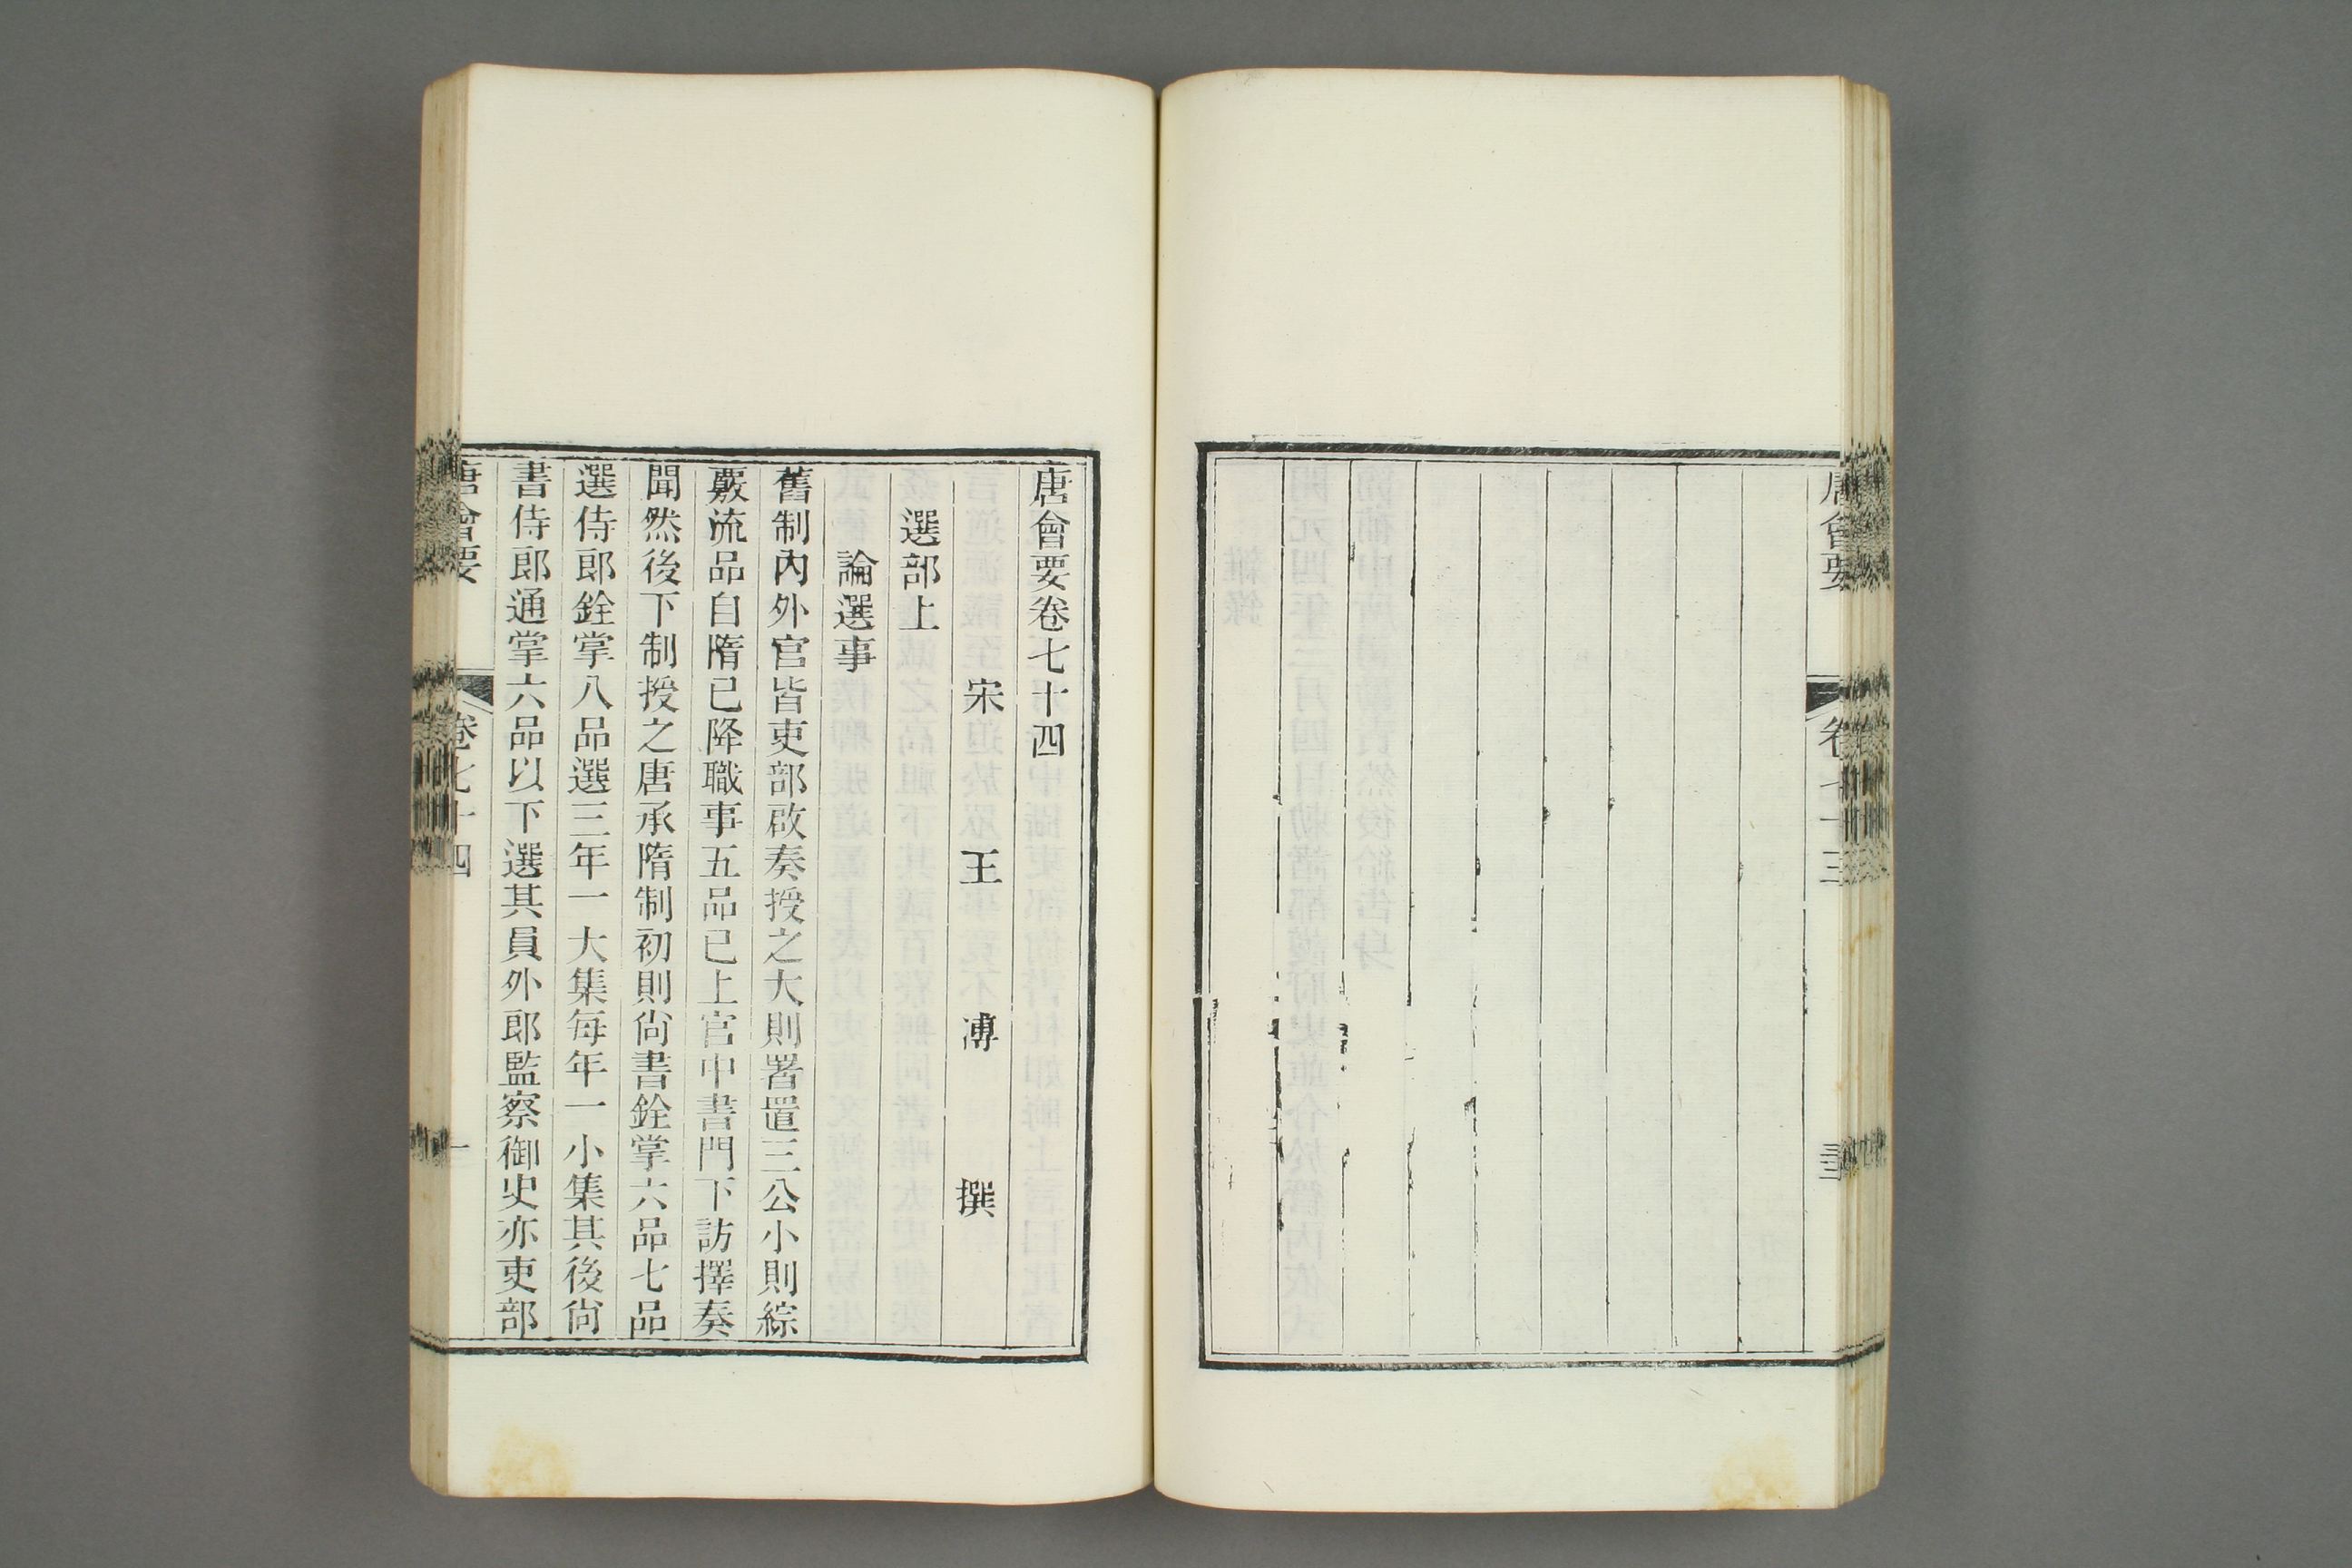 唐會要
卷七十三
唐會要卷七十四
宋王溥撰
選部上
論選事
舊制內外官皆吏部啟奏授之大則署置三公小則綜
覈流品自隋已降職事五品已上官中書門下訪擇奏
聞然後下制授之唐承隋制初則尙書銓掌六品七品
選侍郎銓掌八品選三年一大集每年一小集其後尙
書侍郎通掌六品以下選其員外郎監察御史亦吏部
唐會要
卷七十四
一